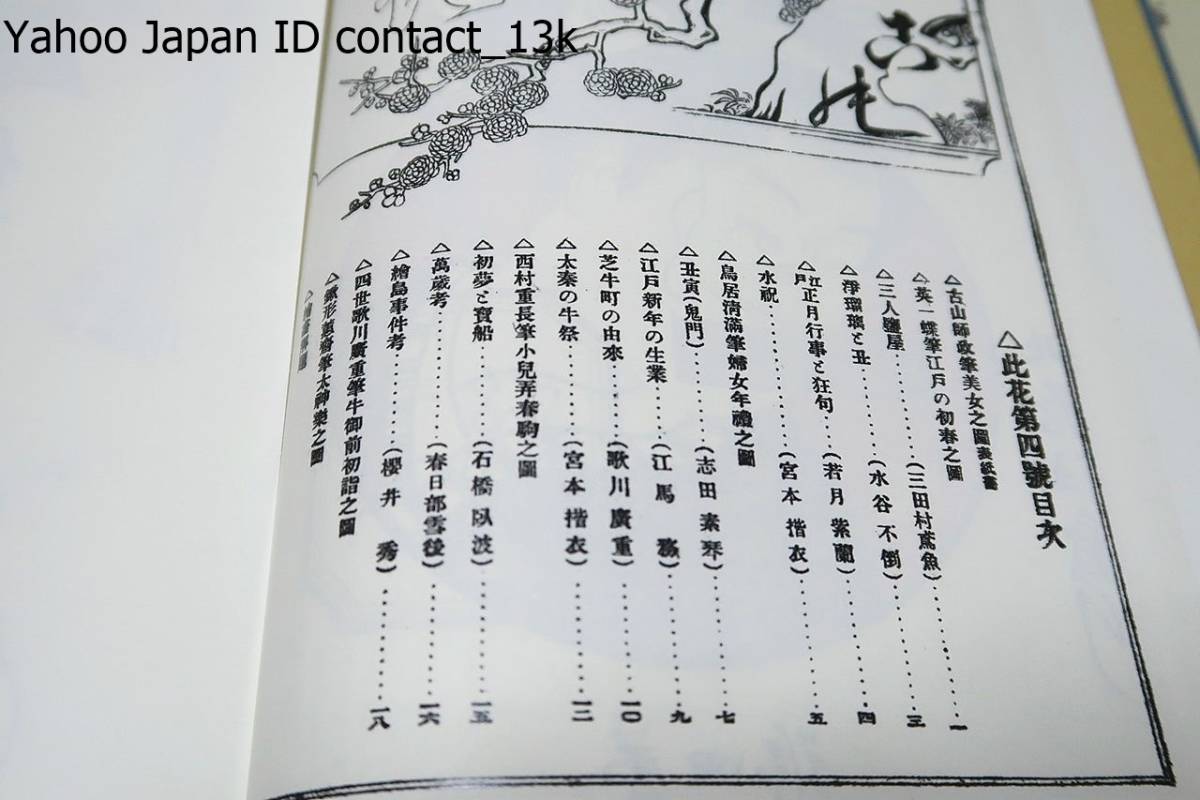 Yahoo Japan ID contact_13k
△此花第四號目次
△古山師政筆美女之圖表紙畫
△英一蝶筆江戸の初春之圖
△三人鹽屋……(三田村鳶魚)……一
△淨瑠璃と丑……(水谷不倒)……三
△江戸正月行事と狂句…(若月紫蘭)……四
△水祝……(宮本揩衣)……五
△鳥居清滿筆婦女年禮之圖
△丑寅(鬼門)……(志田素琴)……七
△江戸新年の生業……(江馬務)……九
△芝牛町の由來……(歌川廣重)……一〇
△太秦の牛祭……(宮本揩衣)……一二
△西村重長筆小兒弄春駒之圖
△初夢と寶船……(石橋臥波)……一五
△萬歲考……(春日部雪後)……一六
△繪島事件考……(櫻井秀)……一八
△四世歌川廣重筆牛御前初詣之圖
△鍬形蕙齋筆太神樂之圖